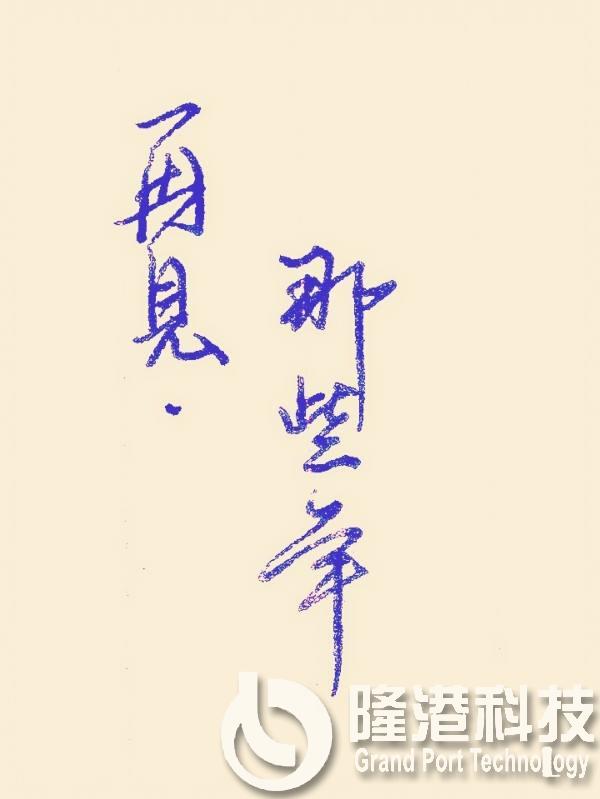 再見·
那些年
隆港科技
Grand Port Technology